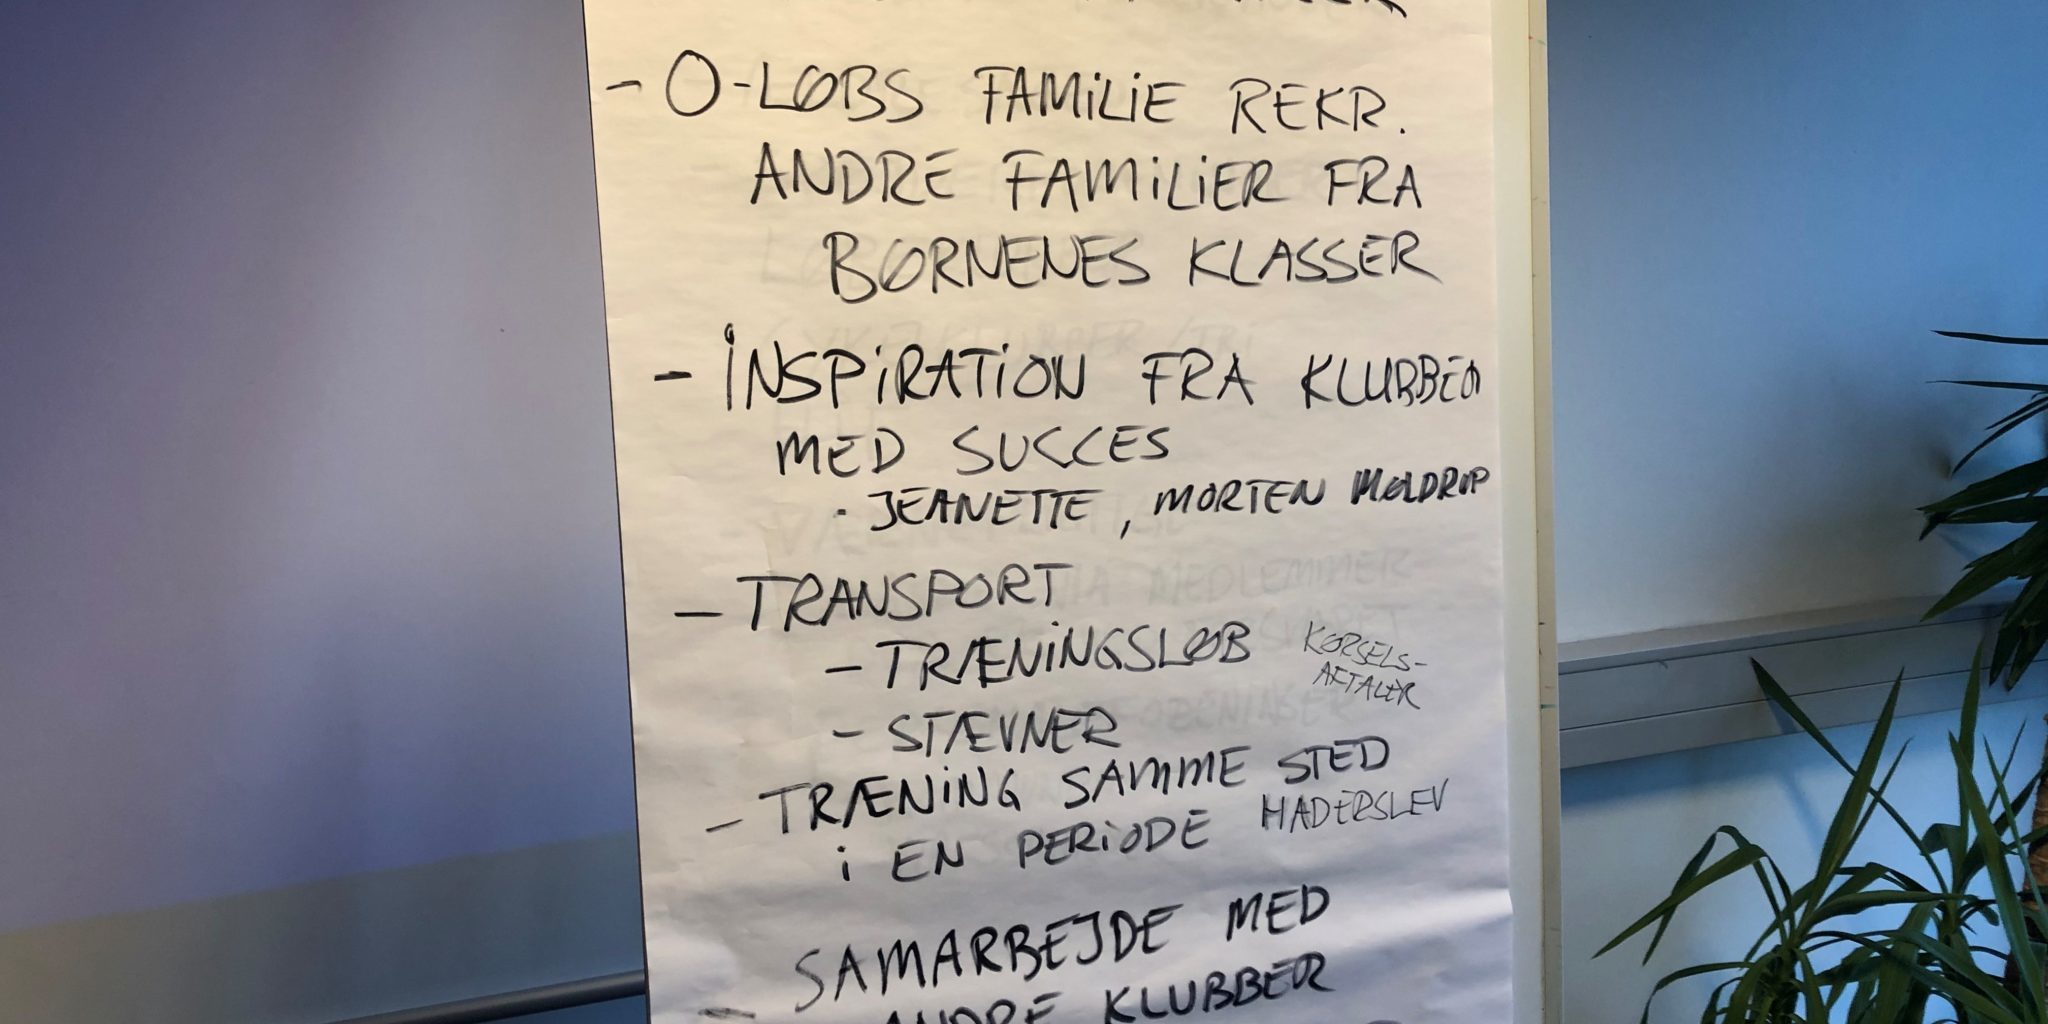 - O-LØBS FAMILIE REKR.
ANDRE FAMILIER FRA
BØRNENES KLASSER
- INSPIRATION FRA KLUBBER
MED SUCCES
· JEANETTE, MORTEN MØLDRUP
- TRANSPORT
- TRÆNINGSLØB KØRSELS-
AFTALER
- STÆVNER
- TRÆNING SAMME STED
i EN PERIODE HADERSLEV
- SAMARBEJDE MED
ANDRE KLUBBER